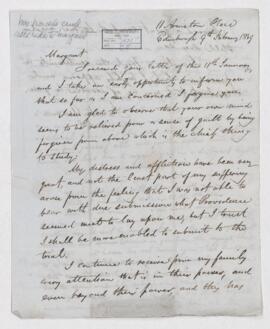 11 Ainslie Place
Edinburgh 9th February 1849
Margaret,
I received your letter of the 18th January
and I take an early opportunity to inform you
that so far as I am concerned I forgive you.
I am glad to observe that your own mind
seems to be relieved from a sense of guilt by being
forgiven from above which is the chief thing
to study.
My distress and afflictions have been very
great, and not the least part of my suffering
arose from the feeling that I was not able to
bear with due submission what Providence
seemed meet to lay upon me, but I trust
I shall be now enabled to submit to the
trial.
I continue to receive from my family
every attention that is in their power, and
even beyond their power, and they has